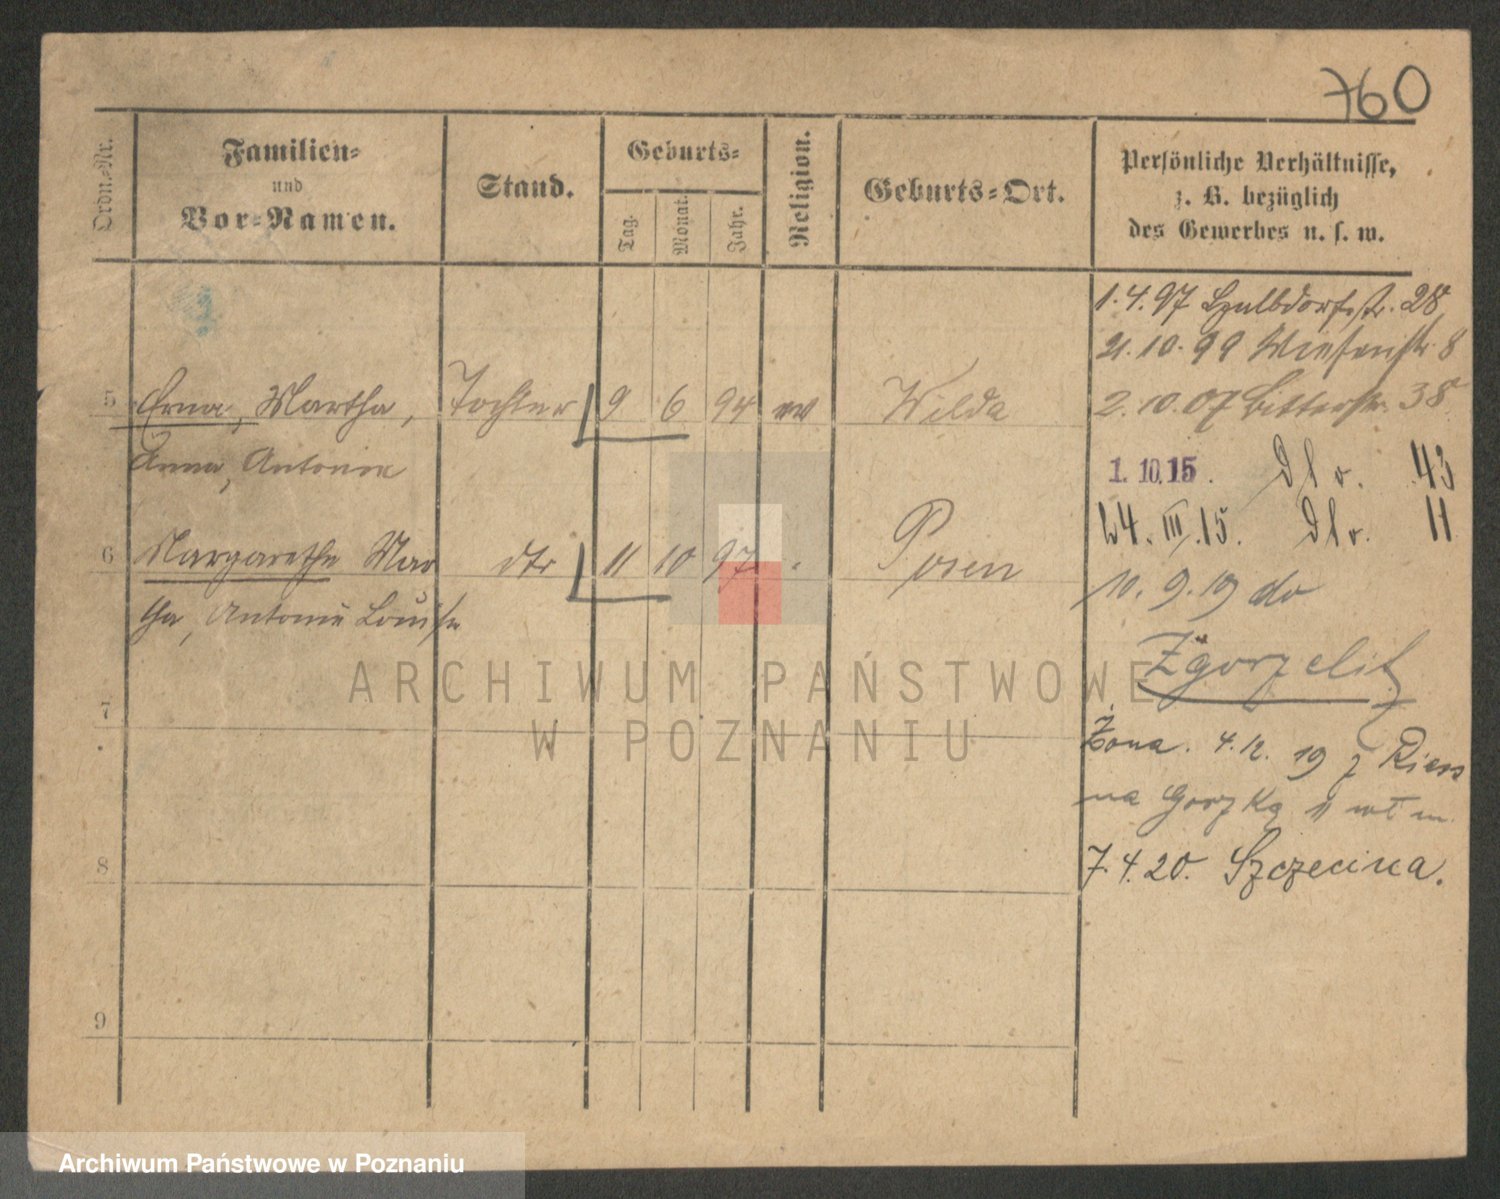 760
Ordn.-Nr.
Familien-
und
Vor-Namen.
Stand.
Geburts-
Tag.
Monat.
Jahr.
Religion.
Geburts-Ort.
Persönliche Verhältnisse,
z. B. bezüglich
des Gewerbes u. s. w.
1.4.97 28
21.10.99 Wiesenstr. 8
5 Erna, Martha, Tochter 9 6 94 ev Wilda
2.10.07 Bitterstr. 38
Anna, Antonie
1.10.15. 43
24.III.15. 11
6 Margarethe Mar dto 11 10 97 Posen
10.9.19 do
tha, Antonie Louise
Zgorzelic
ARCHIWUM PAŃSTWOWE
W POZNANIU
7
Żona. 4.12.19 z
na 11
8
7.4.20. Szczecina.
9
Archiwum Państwowe w Poznaniu